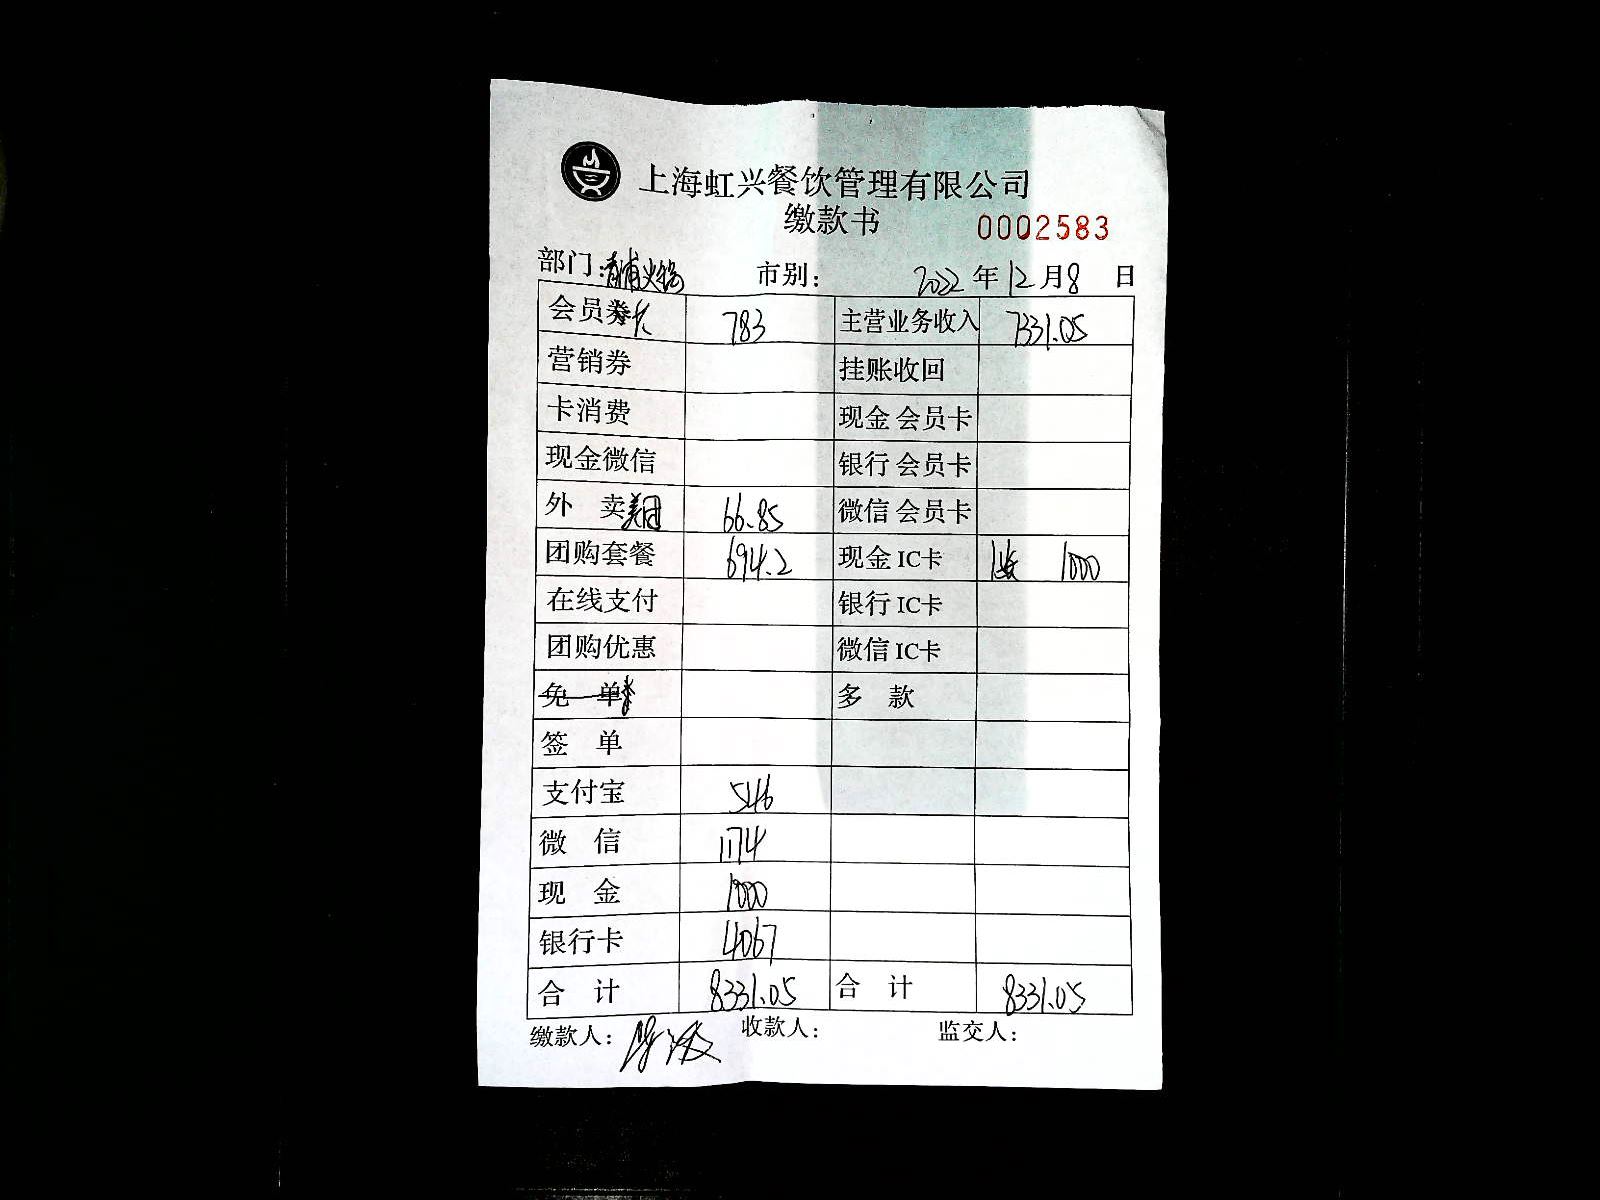 上海虹兴餐饮管理有限公司
缴款书 0002583
部门:青浦火锅 市别: 2022年12月8日
会员卡 783 主营业务收入 7331.05
营销券 挂账收回
卡消费 现金会员卡
现金微信 银行会员卡
外 卖美团 66.85 微信会员卡
团购套餐 694.2 现金IC卡 1张 1000
在线支付 银行IC卡
团购优惠 微信IC卡
免 单 多 款
签 单
支付宝 546
微 信 1174
现 金 1000
银行卡 4067
合 计 8331.05 合 计 8331.05
缴款人: 收款人: 监交人: